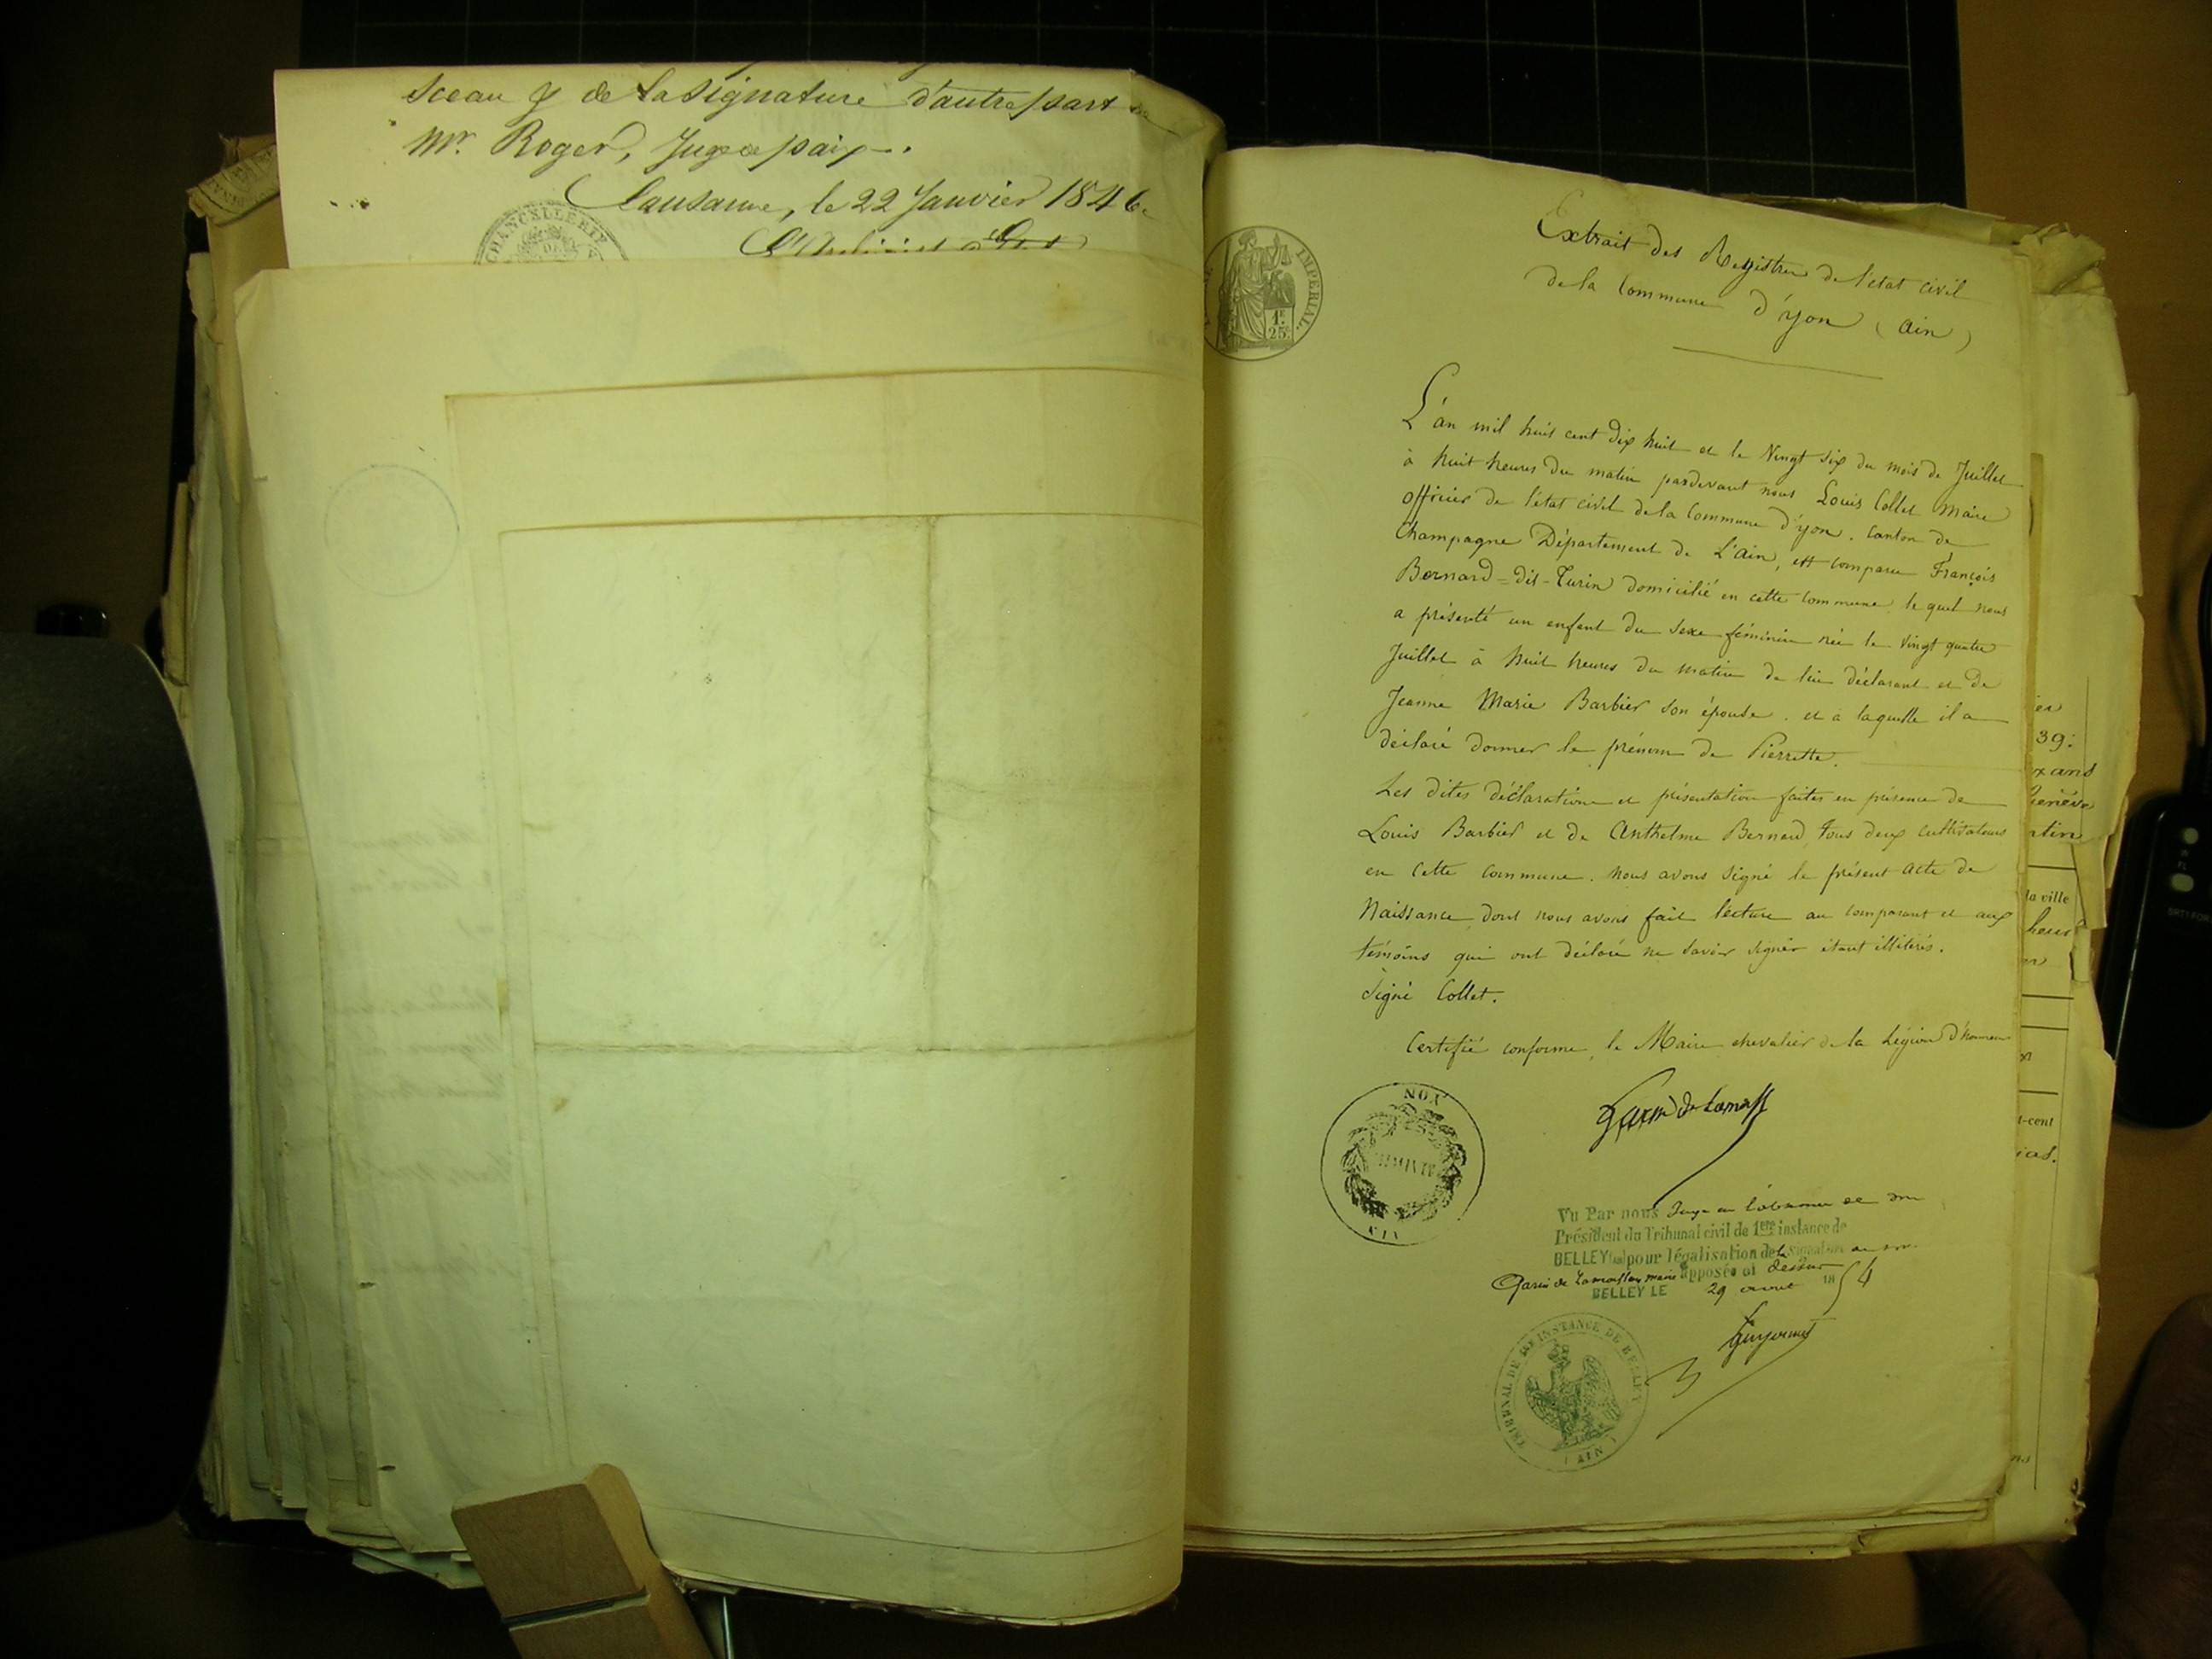 sceau & de la signature d'autre part de
Mr. Roger, Juge de paix.
Lausanne, le 22 Janvier 1846.
CHANCELLERIE
IMPERIAL.
1F.
25c
Extrait des Registres de l'état civil
de la Commune d'yon (ain)
L'an mil huit cent dix huit et le Vingt six du mois de Juillet
à huit heures du matin pardevant nous Louis Collet Maire
officier de l'état civil de la Commune d'yon, canton de
Champagne Département de L'ain, est comparu François
Bernard=dit-Turin domicilié en cette commune, le quel nous
a présenté un enfant du sexe féminin née le vingt quatre
Juillet à huit heures du matin de lui déclarant et de
Jeanne Marie Barbier son épouse. et à laquelle il a
déclaré donner le prénom de Pierrette.
Les dites déclaration et présentation faites en présence de
Louis Barbier et de Anthelme Bernard, tous deux cultivateurs
en cette commune. nous avons signé le présent acte de
Naissance, dont nous avons fait lecture au comparant et aux
témoins qui ont déclaré ne savoir signer étant illitérés.
Signé Collet.
Certifié conforme, le Maire chevalier de la Légion d'honneur
YON
AIN
Vu Par nous Juge en l'absence de Mr
Président du Tribunal civil de 1ere instance de
BELLEY pour légalisation de la signature de Mr
Garin de Lamorflan maire apposée ci dessus
BELLEY LE 29 avril 1854
TRIBUNAL DE 1RE INSTANCE DE BELLEY
(AIN)
39:
x ans
Genève
la ville
heur
t-cent